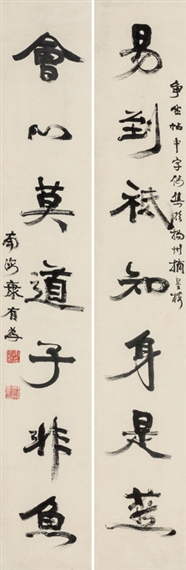 易到祇知身是
爭坐帖中字集於揚州摘星樓
會心莫道子非魚
南海康有為